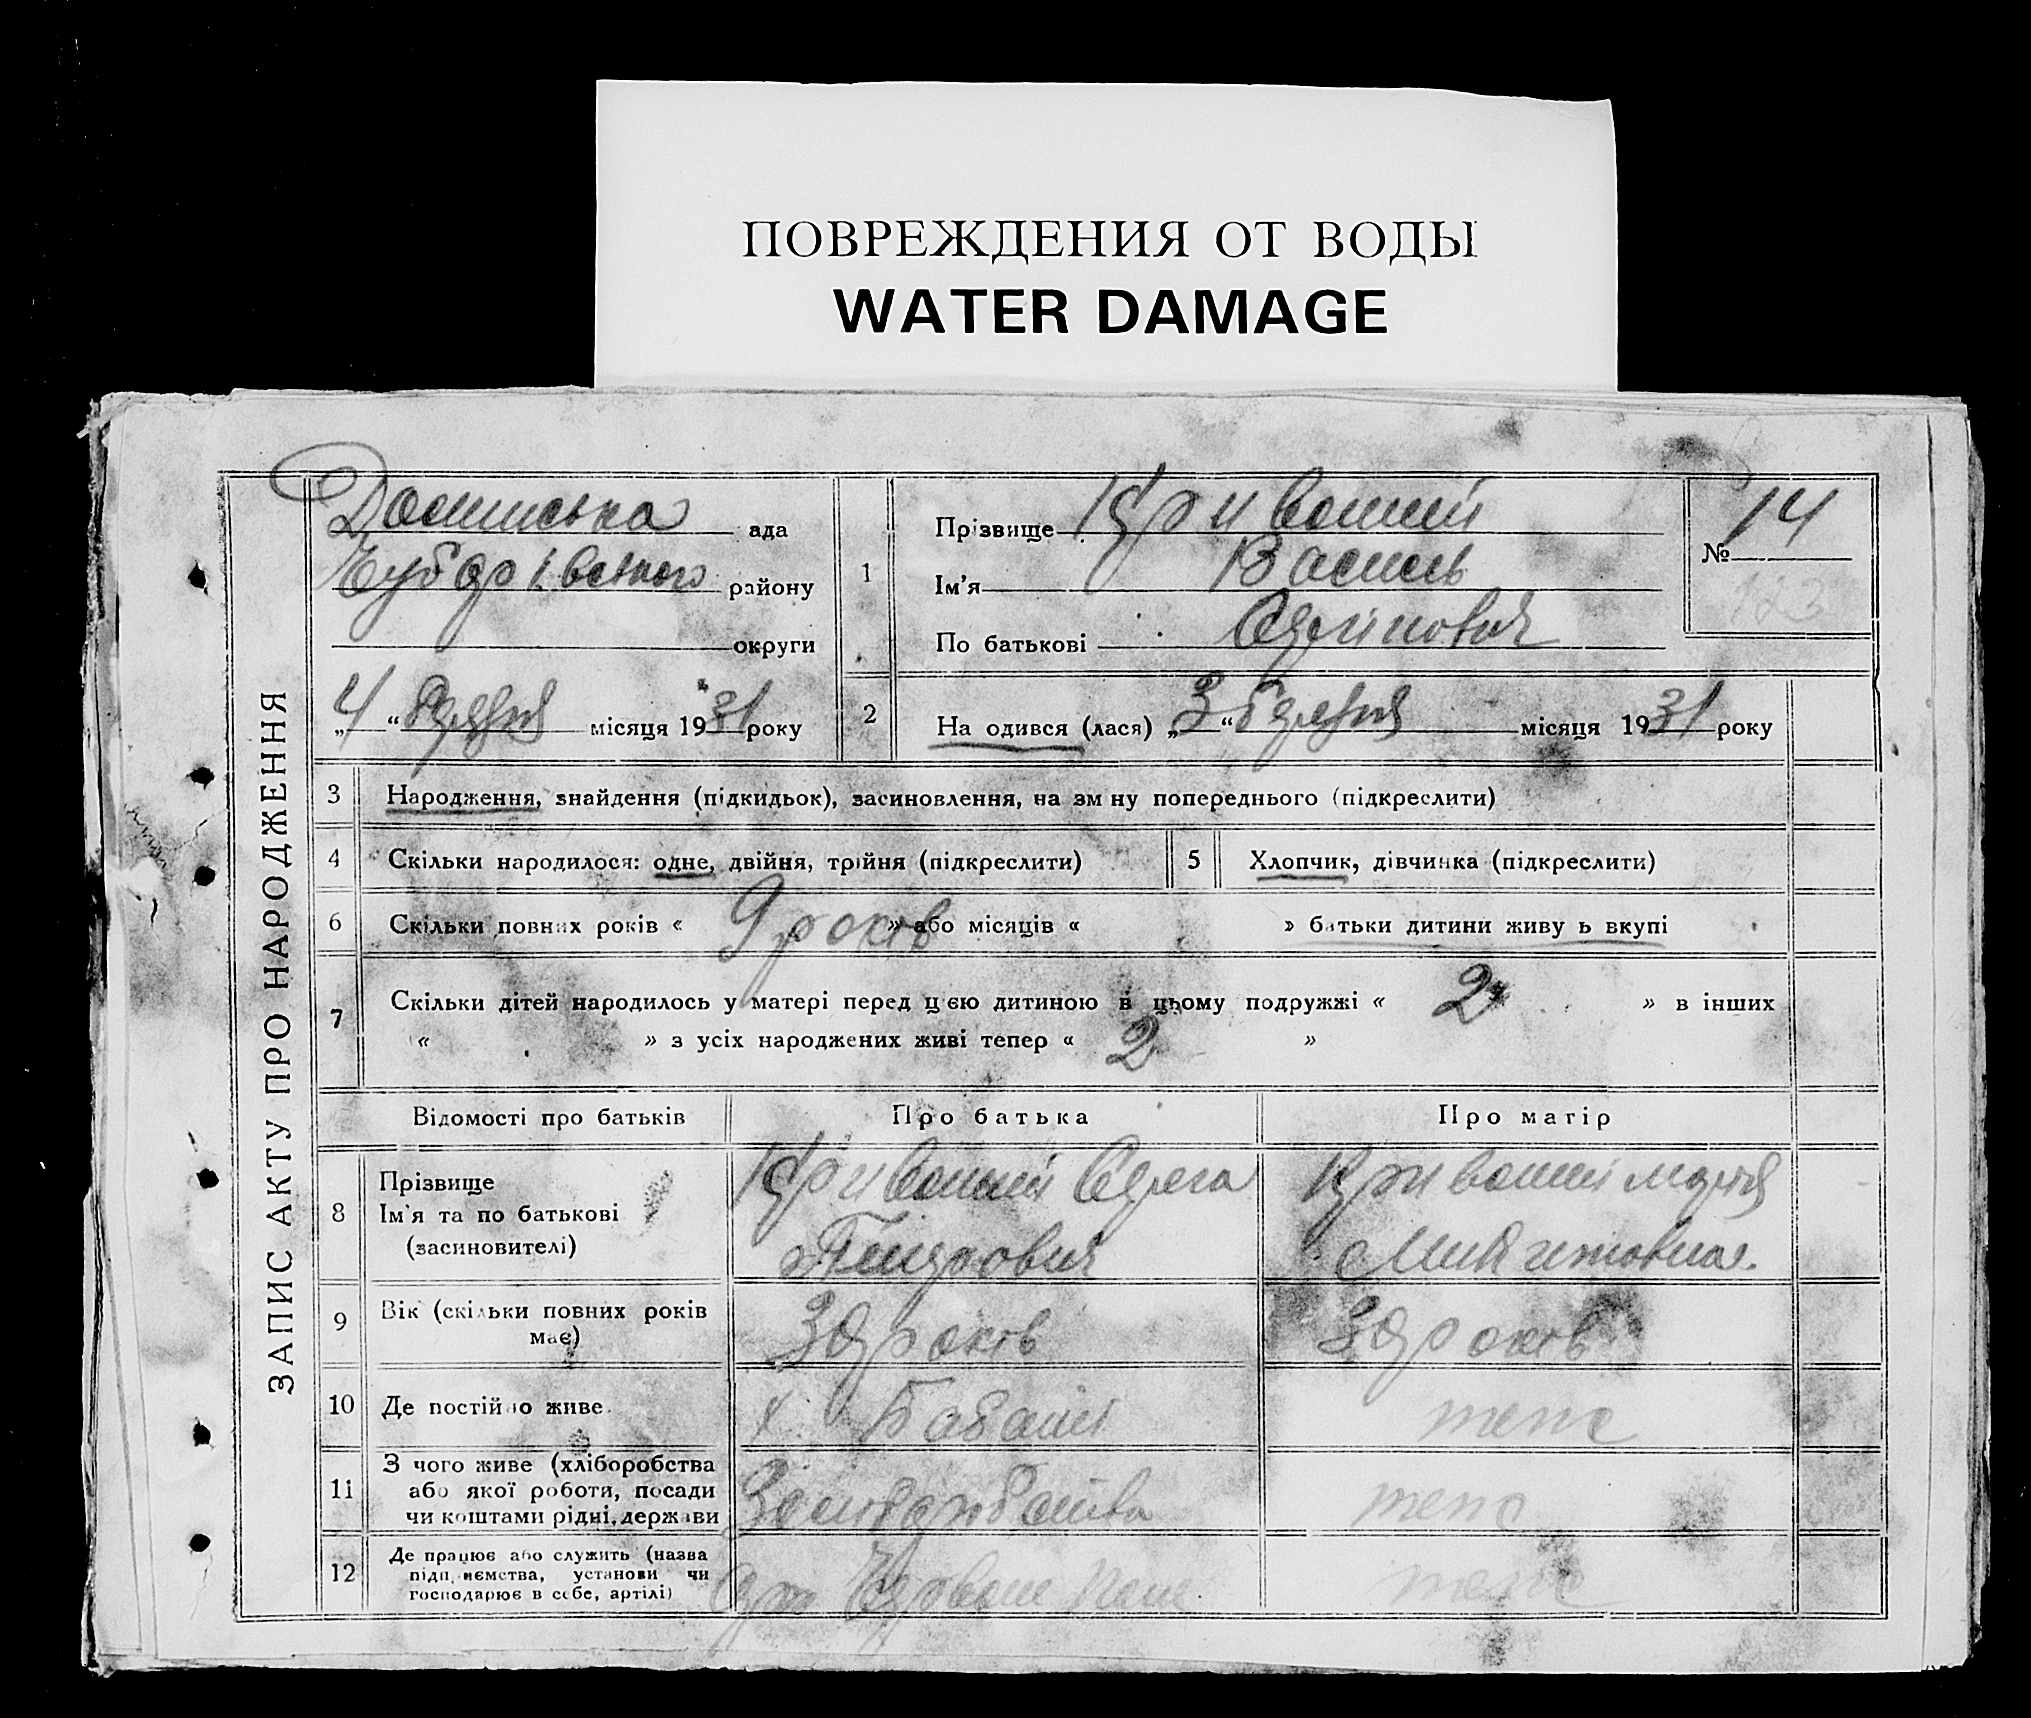 ПОВРЕЖДЕНИЯ ОТ ВОДЫ
WATER DAMAGE
ЗАПИС АКТУ ПРО НАРОДЖЕННЯ
ада
району
округи
„4“ березня місяця 1931 року
1
Прізвище Кривоший
Ім'я Василь
По батькові
№ 14
123
2
На одився (лася) „3“ березня місяця 1931 року
3 Народження, знайдення (підкидьок), засиновлення, на зм ну попереднього (підкреслити)
4 Скільки народилося: одне, двійня, трійня (підкреслити)
5 Хлопчик, дівчинка (підкреслити)
6 Скільки повних років « 9 років » або місяців « » батьки дитини живу ь вкупі
7 Скільки дітей народилось у матері перед цією дитиною в цьому подружжі « 2 » в інших
« » з усіх народжених живі тепер « 2 »
Відомості про батьків
Про батька
Про матір
8 Прізвище
Ім'я та по батькові
(засиновителі)
Кривоший
Кривоший
9 Вік (скільки повних років
має)
30 років
30 років
10 Де постійно живе
теж
11 З чого живе (хліборобства
або якої роботи, посади
чи коштами рідні, держави
теж
12 Де працює або служить (назва
підп иємства, установи чи
господарює в себе, артілі)
теж